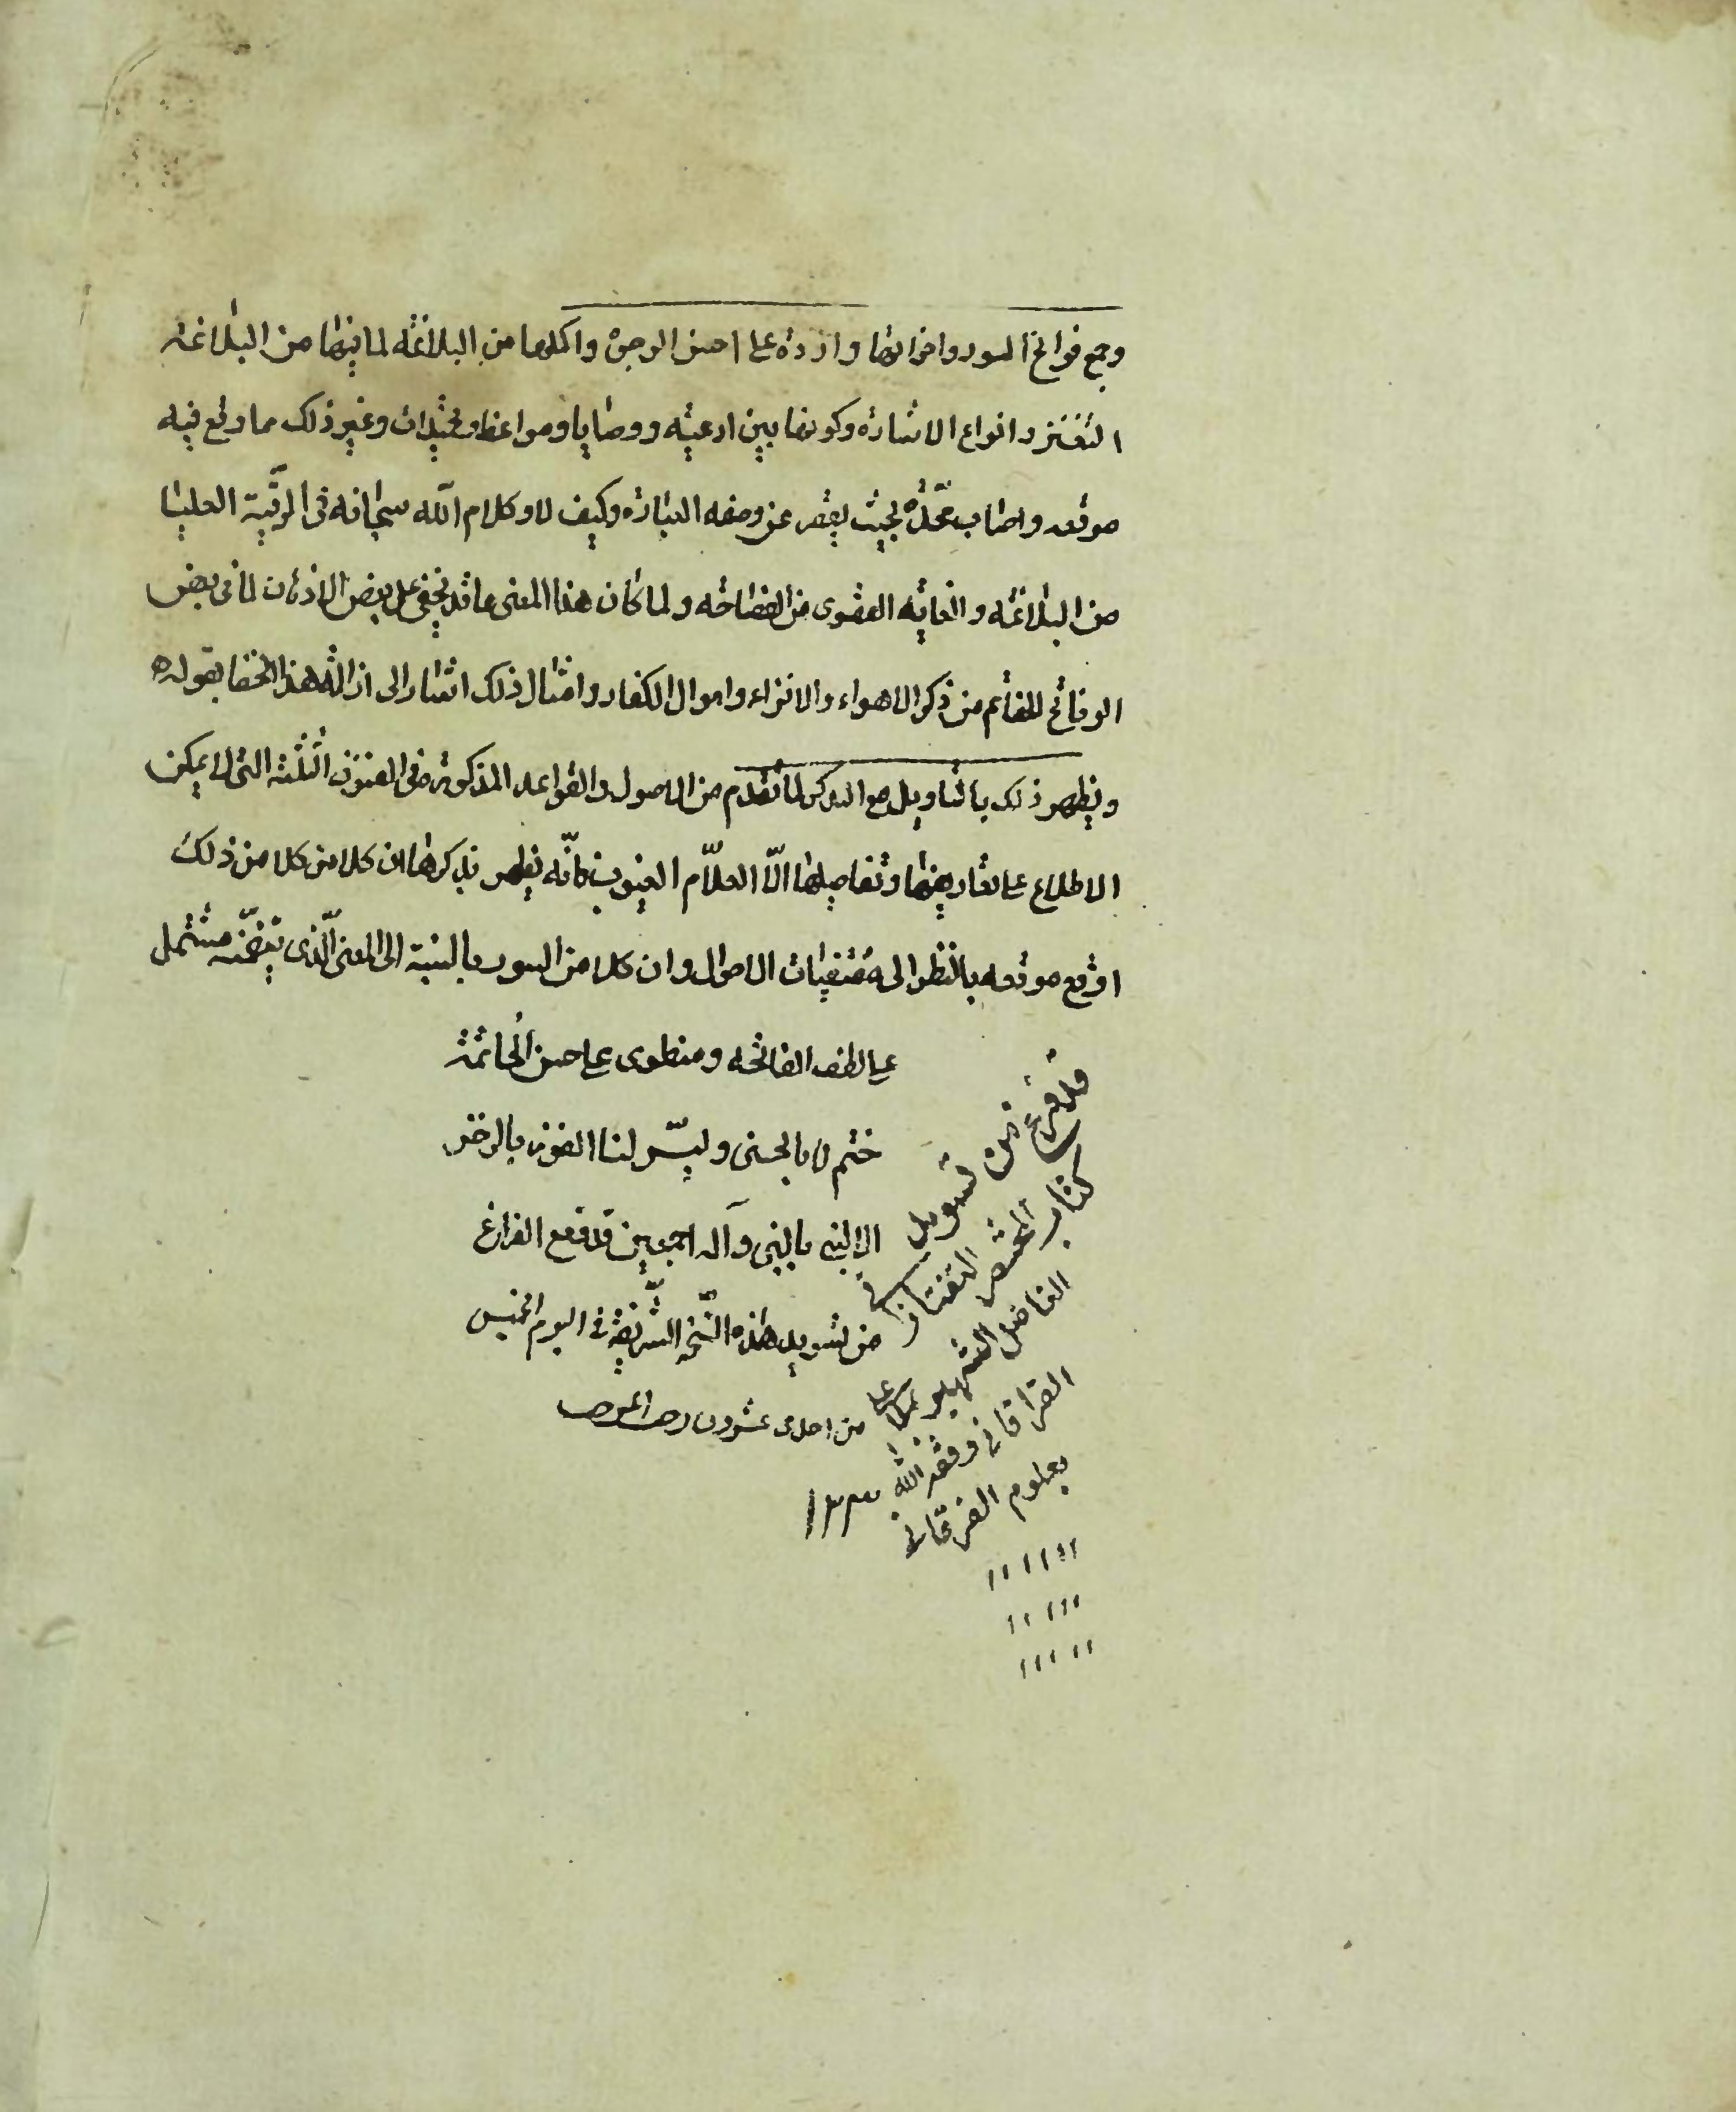 وجمع فواتح السور واخواتها واردة على احسن الوجوه واكملها من البلاغه لما فيها من البلاغه
التفنن وانواع الاشارة وكونها بين ادعيه ووصايا ومواعظ وتحميدات وغير ذلك مما وقع فيه
موقعه واصاب محزه بحيث يقصر عن وصفه العبارة وكيف لا وكلام الله سبحانه في الرتبة العليا
من البلاغه والغايه القصوى من الفصاحه ولما كان هذا المعنى ما قد يخفى على بعض الاذهان لما في بعض
الوفاتح للفاتم من ذكر الاهواء والافزاء واموال الكفار وامثال ذلك اشار الى ازالة هذا الخفا بقوله
ويظهر ذلك بالتاويل مع التذكر لما تقدم من الاصول والقواعد المذكورة في الفنون الثلثة التي لا يمكن
الاطلاع على تفاريعها وتفاصيلها الّا العلّام الغيوب فانّه يظهر بتذكرها ان كلا من كلا من ذلك
اوقع موقعه بالنظر الى مقتضيات الاحوال وان كلا من السور بالنسبة الى المعنى الّذي تضمّنه مشتمل
على لطف الفاتحه ومنطوى على حسن الخاتمة
ختم لا بالحسنى ويسّر لنا الفوز بالذخر
الا النبي بالنبي وآله اجمعين قد وقع الفراغ
من تسويد هذه النّسخة الشّريفة في اليوم الخميس
من احدى عشرون رجب المرجب
١٢٣٣
قد فرغ من تسويد
كتاب المختصر التفتازاني
الفاضل الشهير
القراقاني وفقه الله
بعلوم الفرقاني